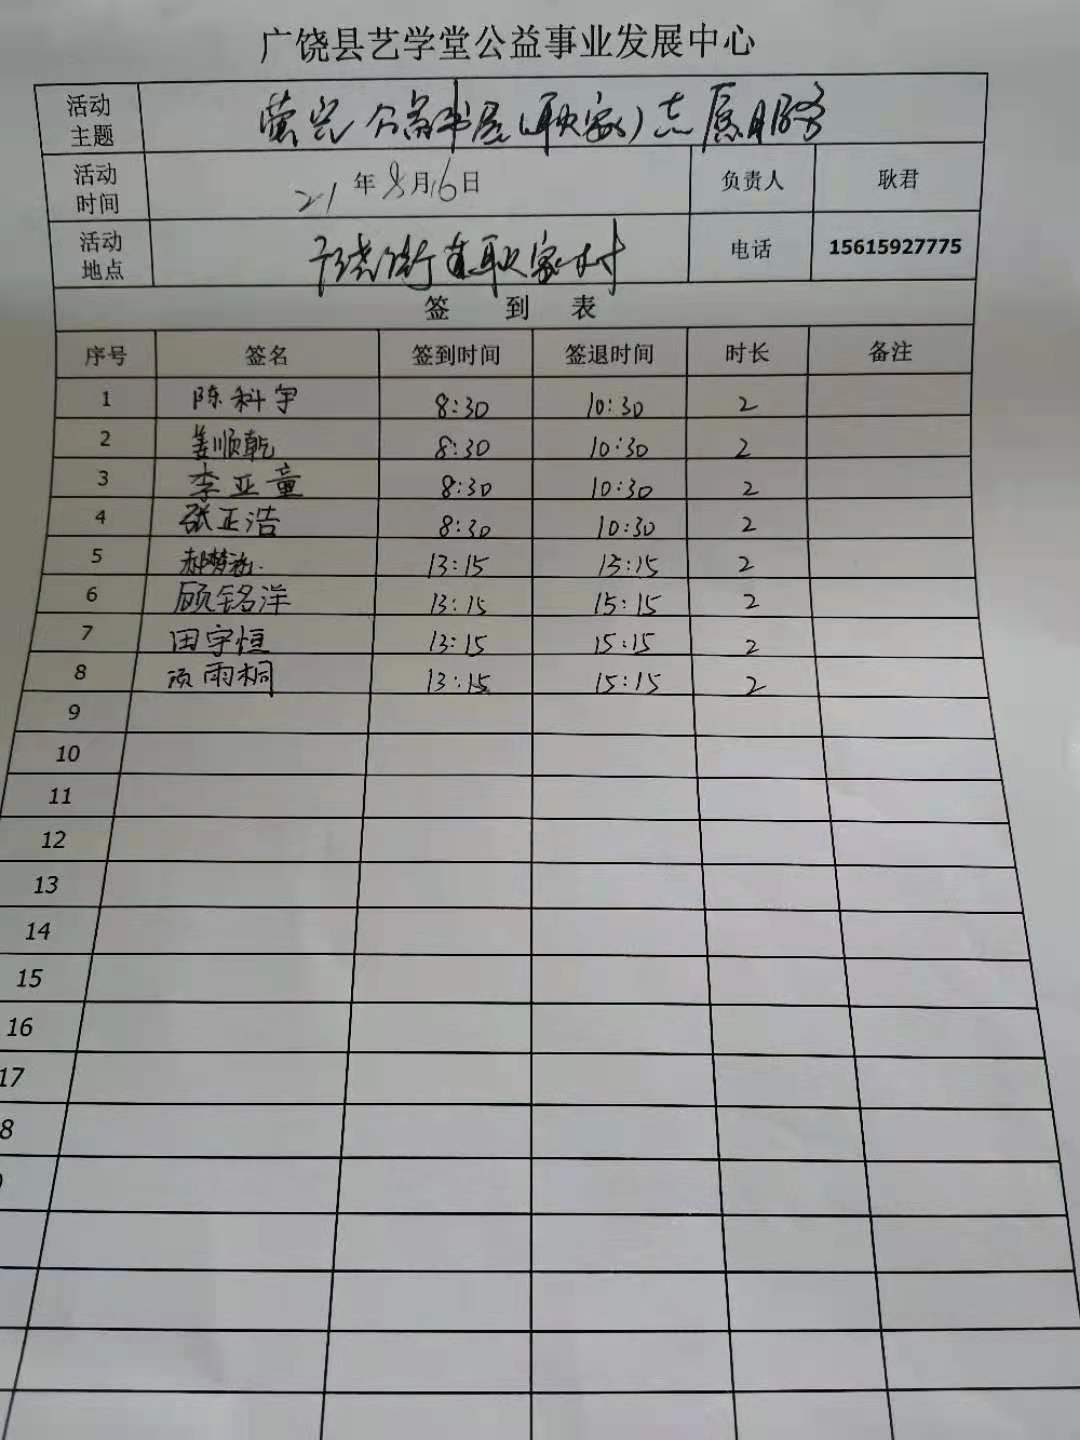 广饶县艺学堂公益事业发展中心
活动主题 萤完公益书屋(耿家)志愿服务
活动时间 21年8月16日 负责人 耿君
活动地点 广饶街道耿家村 电话 15615927775
签 到 表
序号 签名 签到时间 签退时间 时长 备注
1 陈科宇 8:30 10:30 2
2 姜顺乾 8:30 10:30 2
3 李亚童 8:30 10:30 2
4 张正浩 8:30 10:30 2
5 13:15 15:15 2
6 顾铭洋 13:15 15:15 2
7 田宇恒 13:15 15:15 2
8 项雨桐 13:15 15:15 2
9
10
11
12
13
14
15
16
17
8